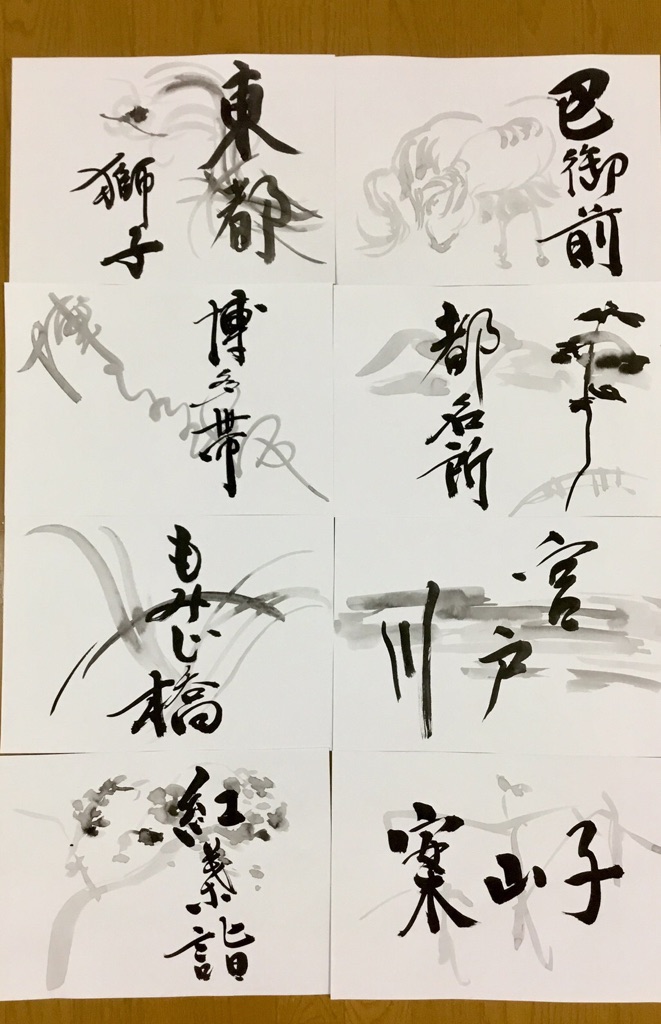 東都
獅子
巴御前
博多帯
都名所
もみじ橋
宮戸川
紅葉詣
案山子